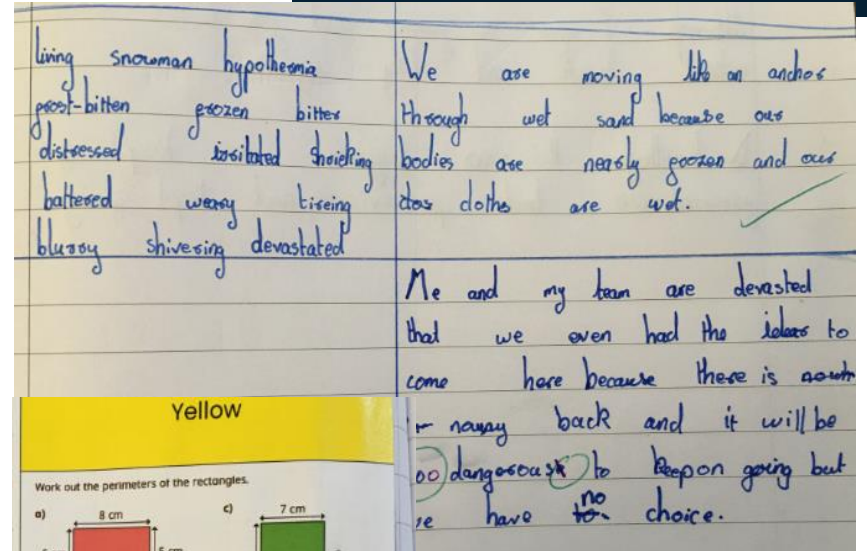 living snowman hypothermia
frost-bitten frozen bitter
distressed irritated shrieking
battered weary tireing
blurry shivering devastated
We are moving like an anchor
through wet sand because our
bodies are nearly frozen and our
cloths are wet.
Me and my team are devasted
that we even had the ideas to
come here because there is
noway back and it will be
dangerous to keep on going but
have no choice.
Yellow
Work out the perimeters of the rectangles.
a) 8 cm c) 7 cm
5 cm